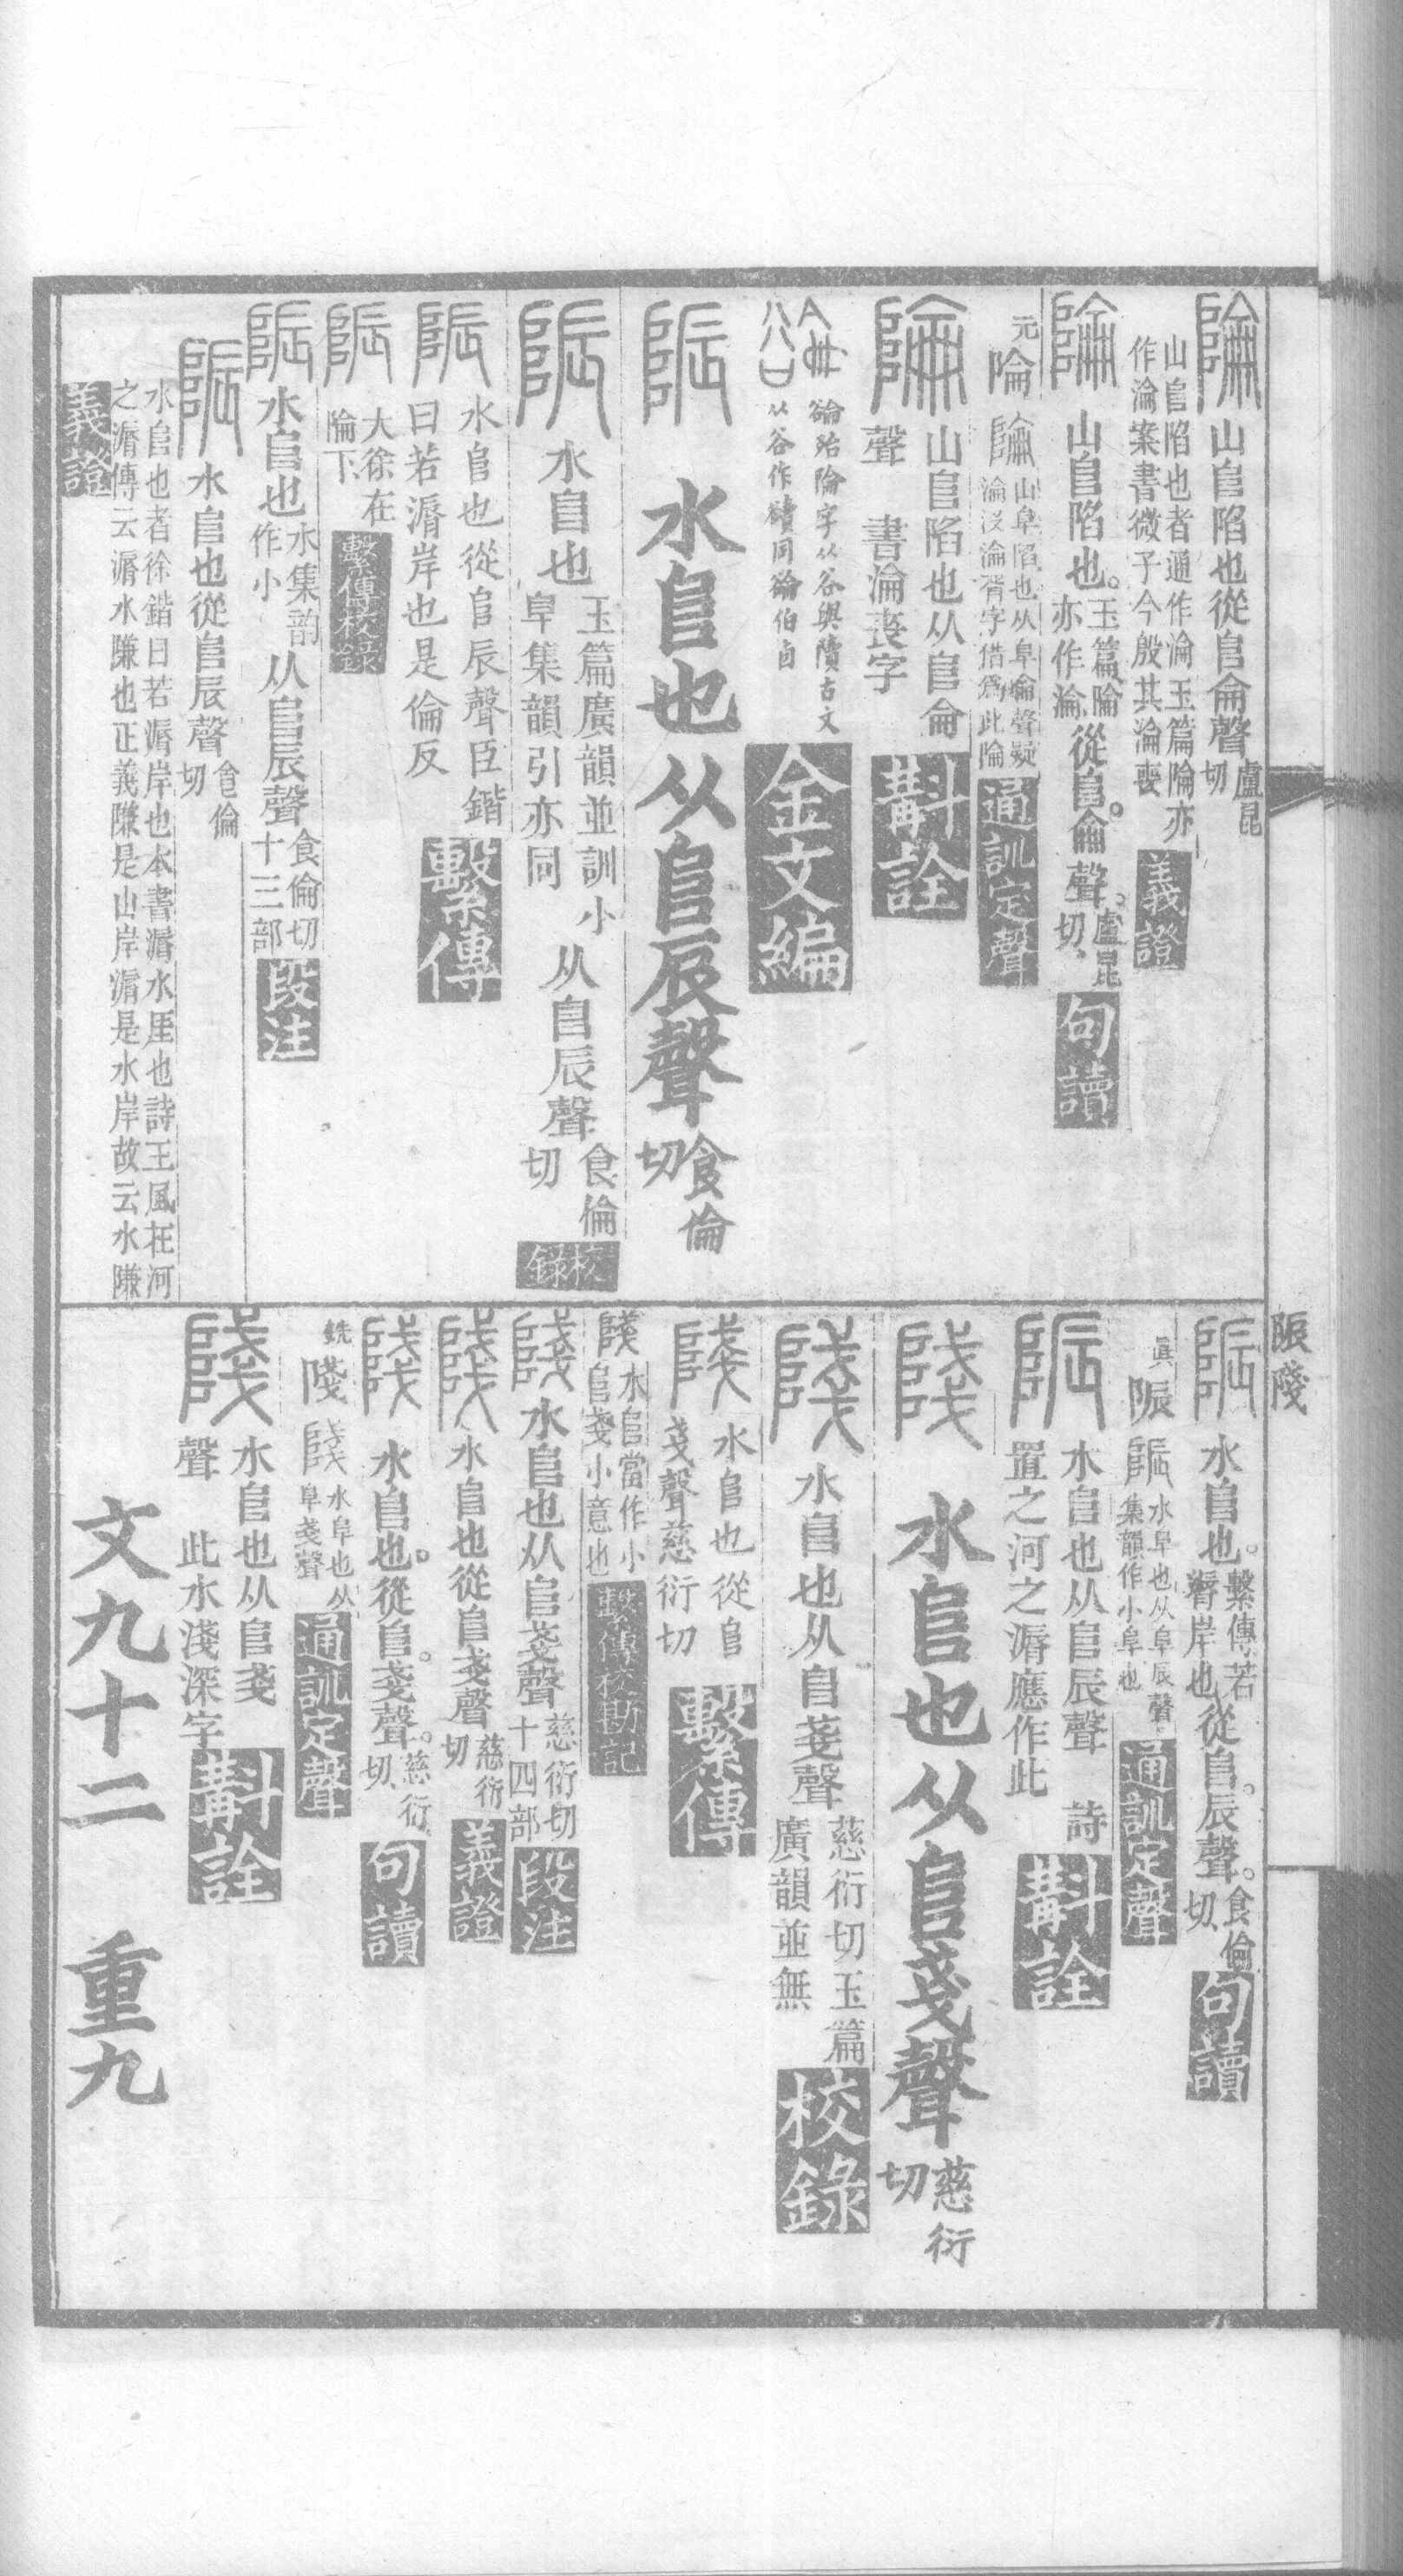 山𨸏陷也從𨸏侖聲盧昆切
山𨸏陷也者通作淪玉篇陯亦
作淪案書微子今殷其淪喪
義證
山𨸏陷也。玉篇陯亦作淪從𨸏。侖聲。盧昆切、
句讀
元
陯
山阜陷也从阜侖聲疑
淪沒淪胥字借爲此陯
通訓定聲
山𨸏陷也从𨸏侖
聲　書淪喪字
斠詮
从谷與隫古文
从谷作𧷓同
金文編
水𨸏也从𨸏辰聲食倫切
水𨸏也玉篇廣韻並訓小阜集韻引亦同从𨸏辰聲食倫切
校錄
水𨸏也從𨸏辰聲臣鍇
曰若漘岸也是倫反
繫傳
大徐在
陯下
繫傳校錄
水𨸏也水集韵作小从𨸏辰聲食倫切十三部
段注
水𨸏也從𨸏辰聲食倫切
水𨸏也者徐鍇曰若漘岸也本書漘水厓也詩王風在河
之漘傳云漘水隒也正義隒是山岸漘是水岸故云水隒
義證
陙
水𨸏也。繫傳若漘岸也從𨸏。辰聲。食倫切、
句讀
眞
陙
水阜也从阜辰聲
集韻作小阜也
通訓定聲
水𨸏也从𨸏辰聲　詩
置之河之漘應作此
斠詮
水𨸏也从𨸏戔聲慈衍切
水𨸏也从𨸏戔聲慈衍切玉篇廣韻並無
校錄
水𨸏也從𨸏
戔聲慈衍切
繫傳
水𨸏當作小
𨸏戔小意也
繫傳校勘記
水𨸏也从𨸏戔聲慈衍切十四部
段注
水𨸏也從𨸏戔聲慈衍切
義證
水𨸏也。從𨸏。戔聲。慈衍切、
句讀
銑
水阜也从
阜戔聲
通訓定聲
水𨸏也从𨸏戔
聲　此水淺深字
斠詮
文九十二　重九